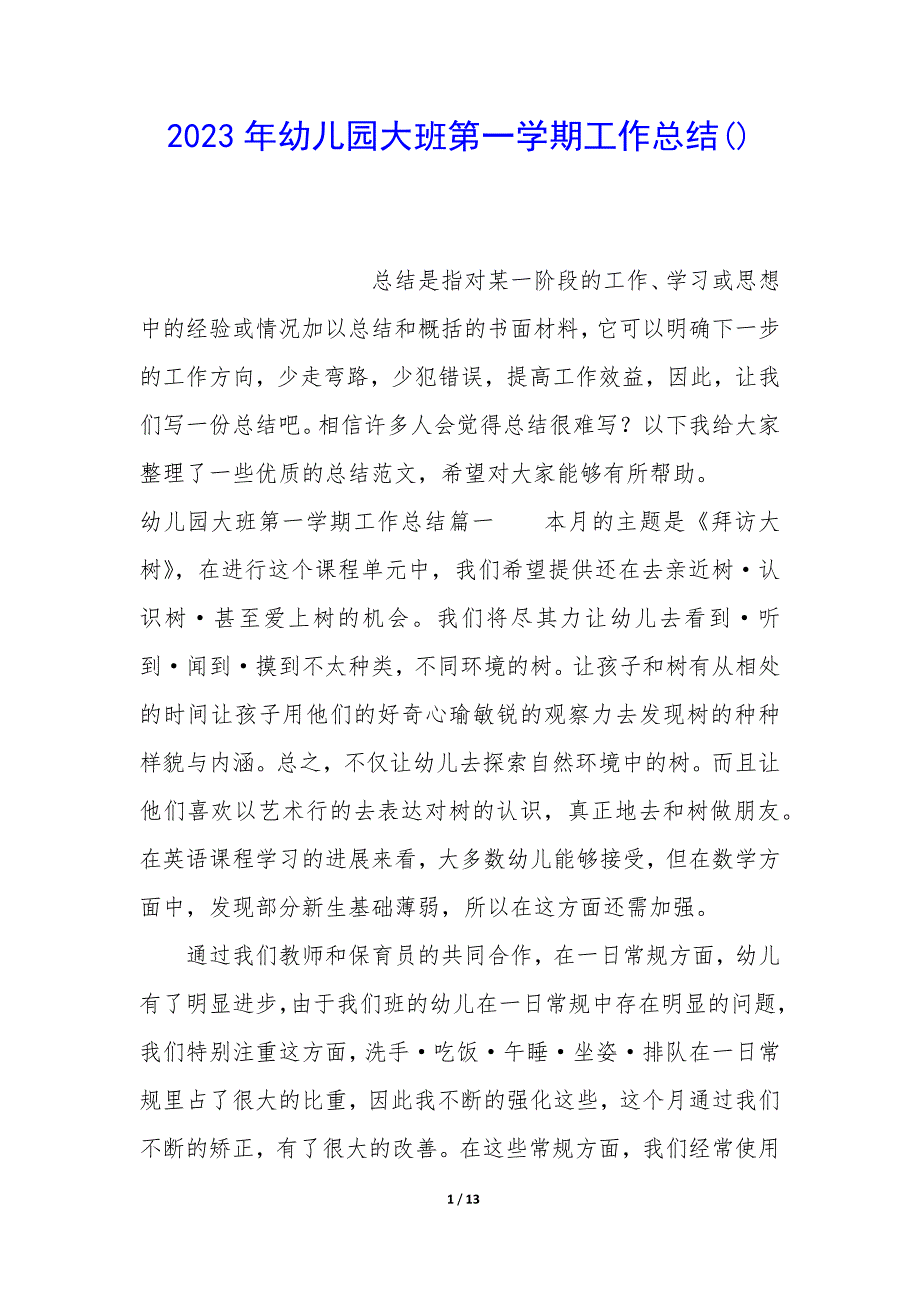 2023 年幼儿园大班第一学期工作总结()
总结是指对某一阶段的工作、学习或思想
中的经验或情况加以总结和概括的书面材料，它可以明确下一步
的工作方向，少走弯路，少犯错误，提高工作效益，因此，让我
们写一份总结吧。相信许多人会觉得总结很难写？以下我给大家
整理了一些优质的总结范文，希望对大家能够有所帮助。
幼儿园大班第一学期工作总结篇一 本月的主题是《拜访大
树》，在进行这个课程单元中，我们希望提供还在去亲近树·认
识树·甚至爱上树的机会。我们将尽其力让幼儿去看到·听
到·闻到·摸到不太种类，不同环境的树。让孩子和树有从相处
的时间让孩子用他们的好奇心瑜敏锐的观察力去发现树的种种
样貌与内涵。总之，不仅让幼儿去探索自然环境中的树。而且让
他们喜欢以艺术行的去表达对树的认识，真正地去和树做朋友。
在英语课程学习的进展来看，大多数幼儿能够接受，但在数学方
面中，发现部分新生基础薄弱，所以在这方面还需加强。
通过我们教师和保育员的共同合作，在一日常规方面，幼儿
有了明显进步，由于我们班的幼儿在一日常规中存在明显的问题，
我们特别注重这方面，洗手·吃饭·午睡·坐姿·排队在一日常
规里占了很大的比重，因此我不断的强化这些，这个月通过我们
不断的矫正，有了很大的改善。在这些常规方面，我们经常使用
1 / 13